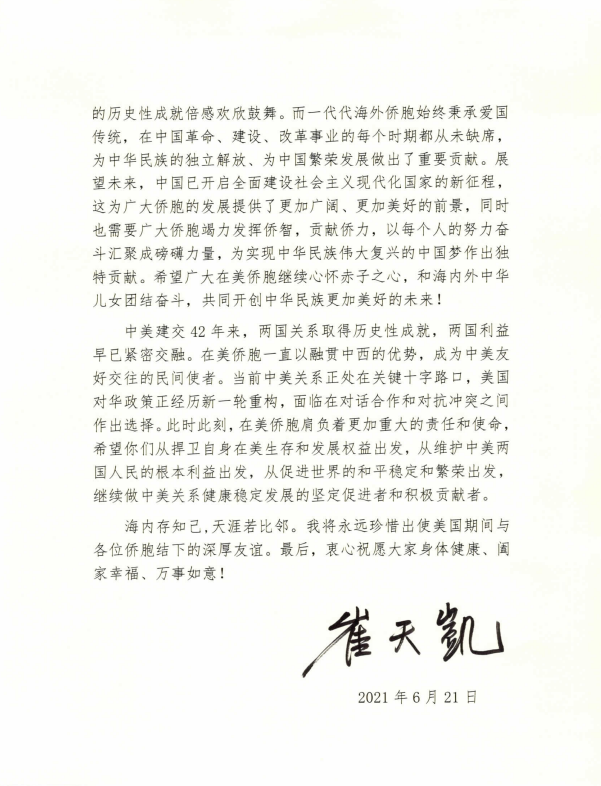 的历史性成就倍感欢欣鼓舞。而一代代海外侨胞始终秉承爱国
传统，在中国革命、建设、改革事业的每个时期都从未缺席，
为中华民族的独立解放、为中国繁荣发展做出了重要贡献。展
望未来，中国已开启全面建设社会主义现代化国家的新征程，
这为广大侨胞的发展提供了更加广阔、更加美好的前景，同时
也需要广大侨胞竭力发挥侨智，贡献侨力，以每个人的努力奋
斗汇聚成磅礴力量，为实现中华民族伟大复兴的中国梦作出独
特贡献。希望广大在美侨胞继续心怀赤子之心，和海内外中华
儿女团结奋斗，共同开创中华民族更加美好的未来！
中美建交 42 年来，两国关系取得历史性成就，两国利益
早已紧密交融。在美侨胞一直以融贯中西的优势，成为中美友
好交往的民间使者。当前中美关系正处在关键十字路口，美国
对华政策正经历新一轮重构，面临在对话合作和对抗冲突之间
作出选择。此时此刻，在美侨胞肩负着更加重大的责任和使命，
希望你们从捍卫自身在美生存和发展权益出发，从维护中美两
国人民的根本利益出发，从促进世界的和平稳定和繁荣出发，
继续做中美关系健康稳定发展的坚定促进者和积极贡献者。
海内存知己,天涯若比邻。我将永远珍惜出使美国期间与
各位侨胞结下的深厚友谊。最后，衷心祝愿大家身体健康、阖
家幸福、万事如意！
崔天凯
2021 年 6 月 21 日